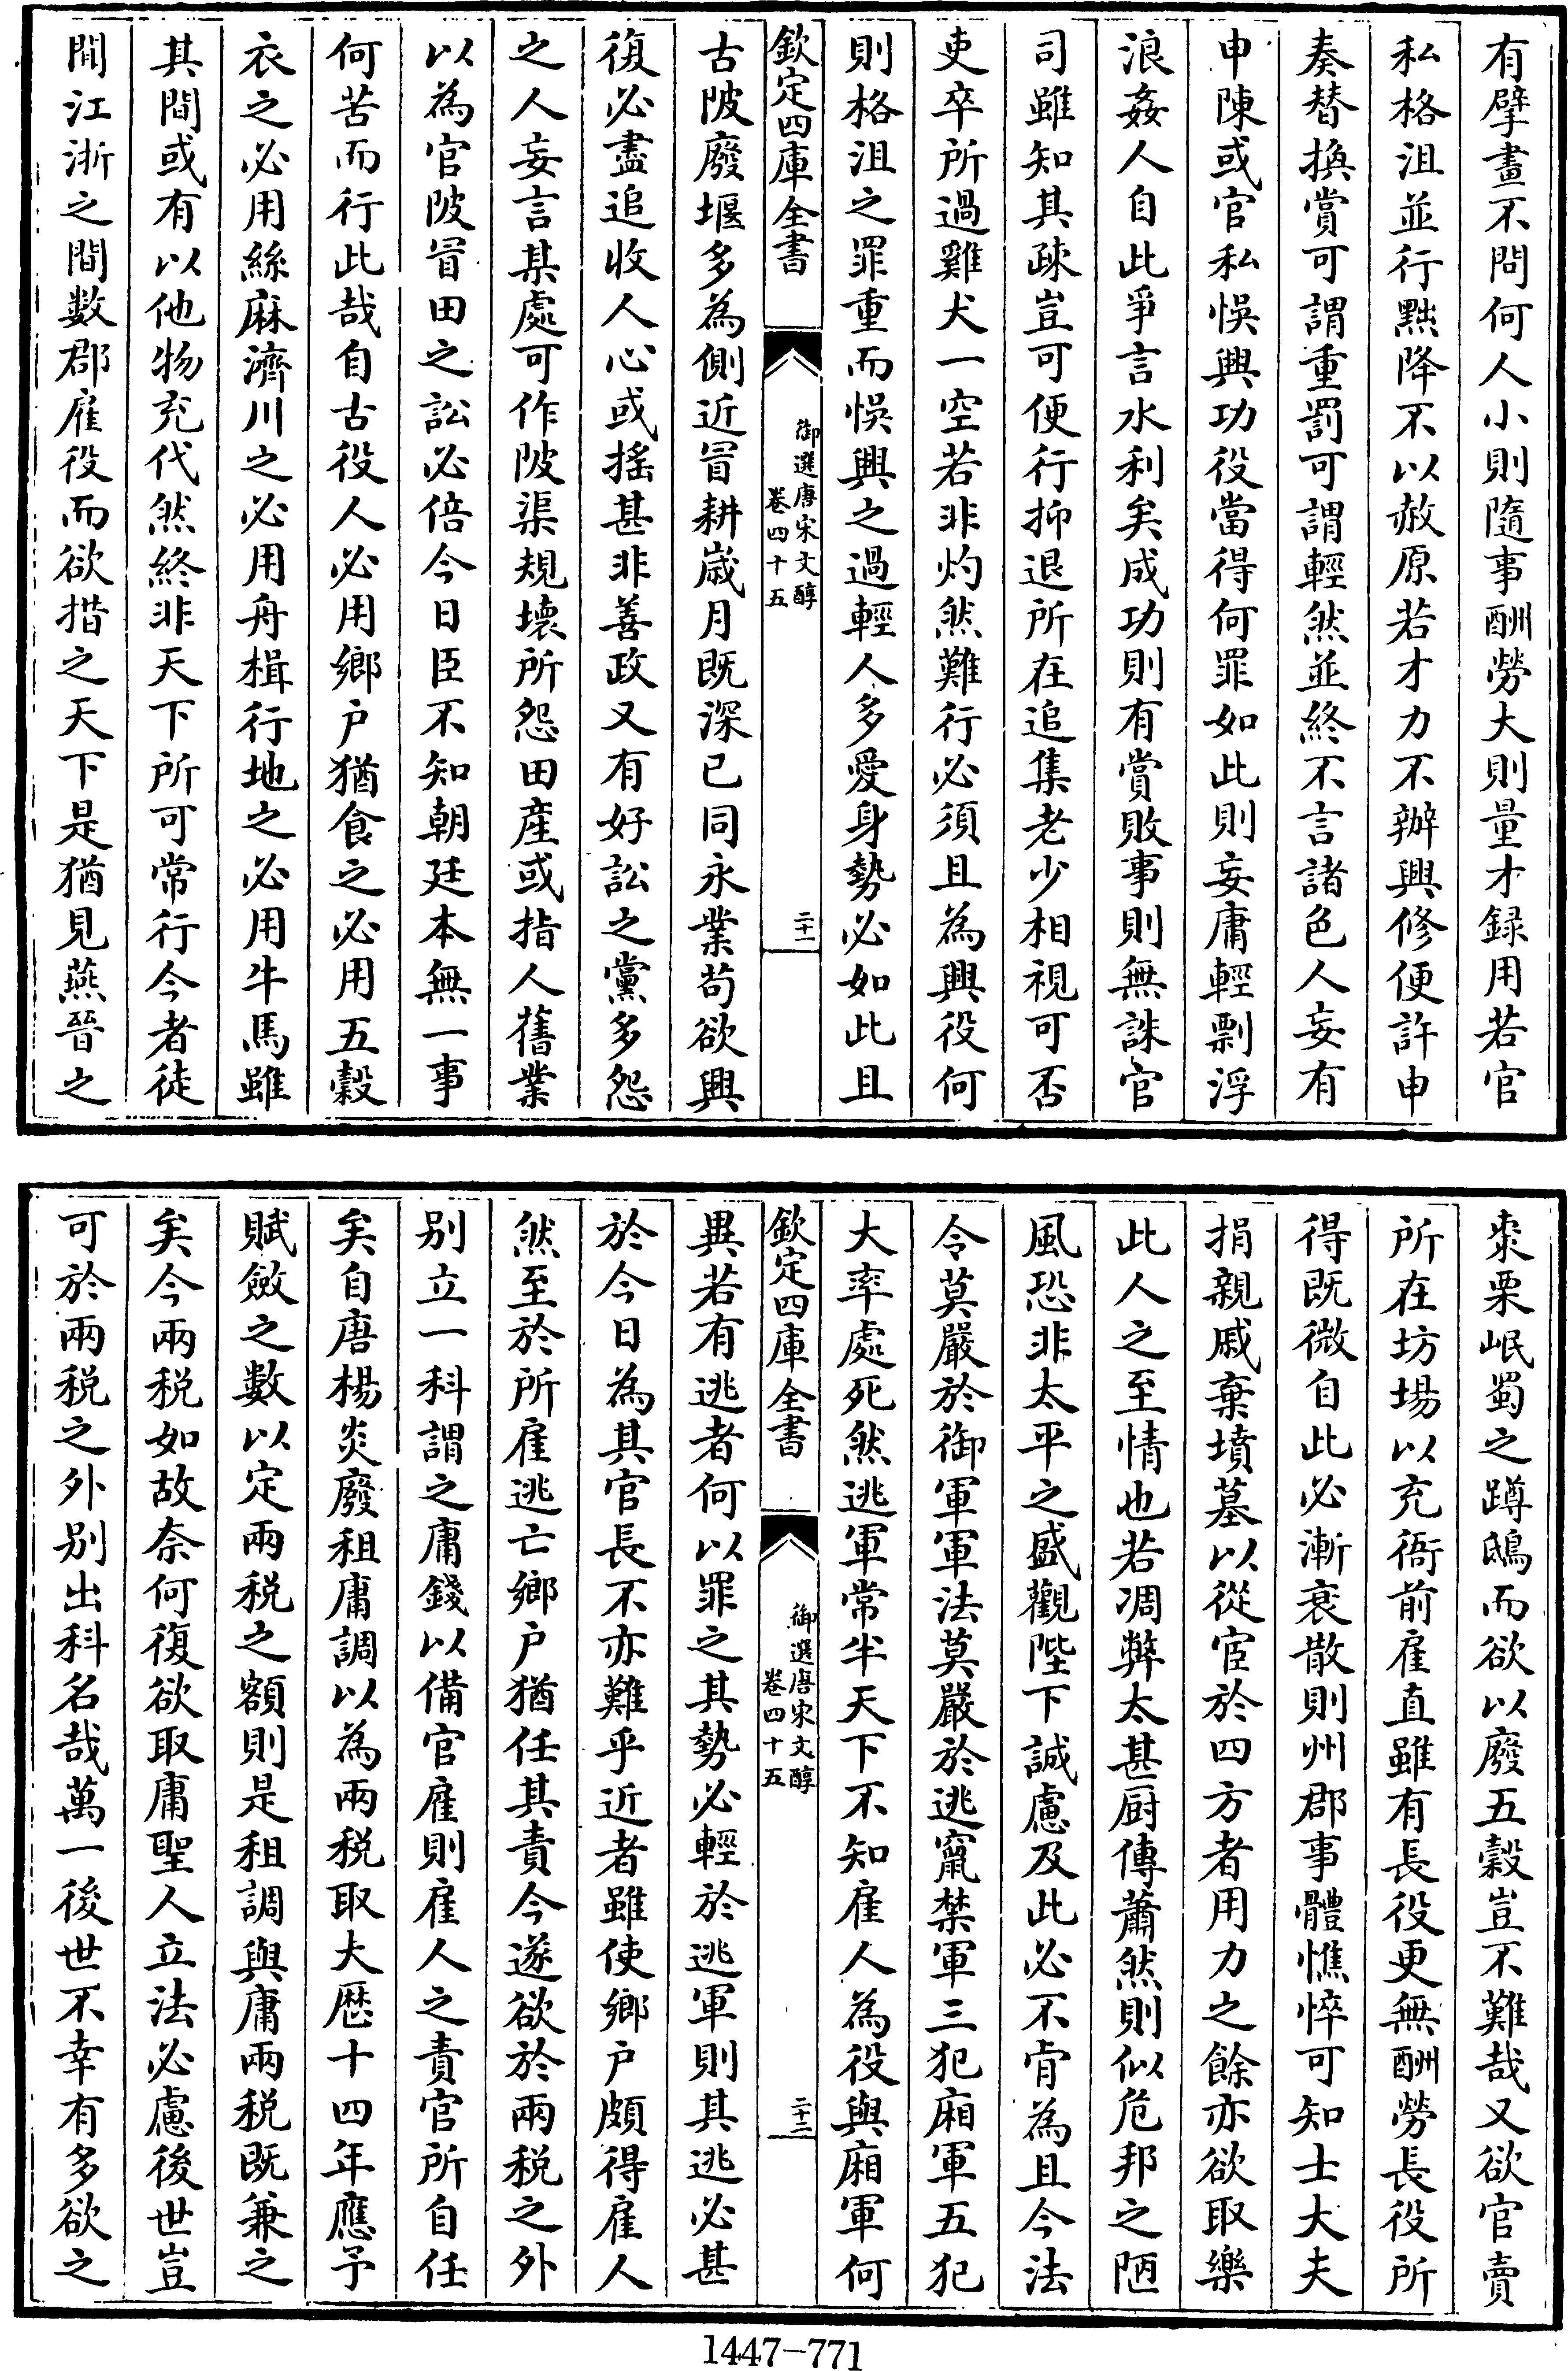 有擘畫不問何人小則隨事酬勞大則量才録用若官
私格沮並行黜降不以赦原若才力不辦興修便許申
奏替換賞可謂重罰可謂輕然並終不言諸色人妄有
申陳或官私悞興功役當得何罪如此則妄庸輕剽浮
浪姦人自此爭言水利矣成功則有賞敗事則無誅官
司雖知其疎豈可便行抑退所在追集老少相視可否
吏卒所過雞犬一空若非灼然難行必須且為興役何
則格沮之罪重而悞興之過輕人多愛身勢必如此且
欽定四庫全書
御選唐宋文醇
卷四十五
二十一
古陂廢堰多為側近冒耕歲月既深已同永業苟欲興
復必盡追收人心或搖甚非善政又有好訟之黨多怨
之人妄言某處可作陂渠規壞所怨田産或指人舊業
以為官陂冒田之訟必倍今日臣不知朝廷本無一事
何苦而行此哉自古役人必用鄉户猶食之必用五穀
衣之必用絲麻濟川之必用舟楫行地之必用牛馬雖
其間或有以他物充代然終非天下所可常行今者徒
聞江浙之間數郡雇役而欲措之天下是猶見燕晉之
棗栗岷蜀之蹲鴟而欲以廢五穀豈不難哉又欲官賣
所在坊場以充衙前雇直雖有長役更無酬勞長役所
得既微自此必漸衰散則州郡事體憔悴可知士大夫
捐親戚棄墳墓以從宦於四方者用力之餘亦欲取樂
此人之至情也若凋弊太甚厨傳蕭然則似危邦之陋
風恐非太平之盛觀陛下誠慮及此必不肯為且今法
令莫嚴於御軍軍法莫嚴於逃竄禁軍三犯廂軍五犯
大率處死然逃軍常半天下不知雇人為役與廂軍何
欽定四庫全書
御選唐宋文醇
卷四十五
二十二
異若有逃者何以罪之其勢必輕於逃軍則其逃必甚
於今日為其官長不亦難乎近者雖使鄉户頗得雇人
然至於所雇逃亡鄉户猶任其責今遂欲於兩税之外
别立一科謂之庸錢以備官雇則雇人之責官所自任
矣自唐楊炎廢租庸調以為兩税取大厯十四年應予
賦斂之數以定兩税之額則是租調與庸兩税既兼之
矣今兩税如故奈何復欲取庸聖人立法必慮後世豈
可於兩税之外别出科名哉萬一後世不幸有多欲之
1447-771